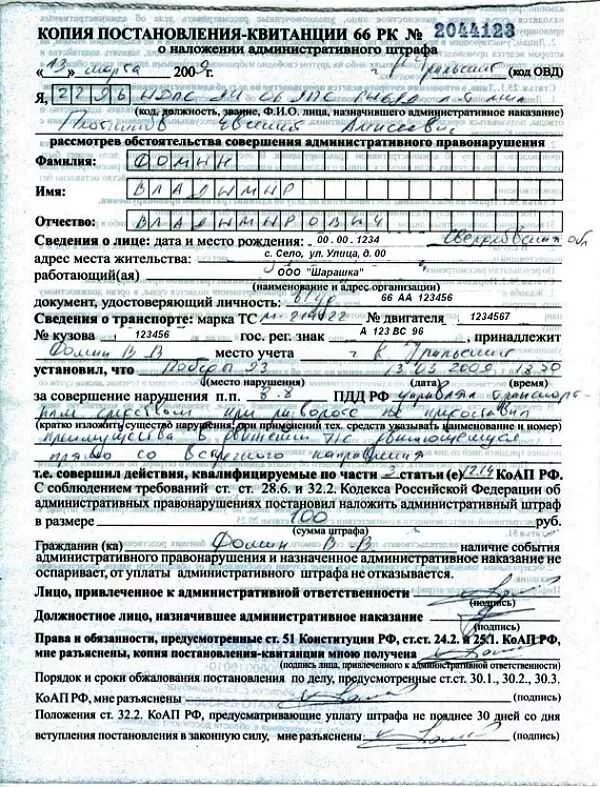 КОПИЯ ПОСТАНОВЛЕНИЯ-КВИТАНЦИИ 66 РК № 2044123
о наложении административного штрафа
« 13 » марта 2009 г. Уральский (код ОВД)
Я, 2296
(код, должность, звание, Ф.И.О. лица, назначившего административное наказание)
Евгений
рассмотрев обстоятельства совершения административного правонарушения
Фамилия: ФОМИН
Имя: ВЛАДИМИР
Отчество: ВЛАДИМИРОВИЧ
Сведения о лице: дата и место рождения: 00 . 00 . 1234 Свердловская обл
адрес места жительства: с. Село, ул. Улица, д. 00
работающий(ая) ООО "Шарашка"
(наименование и адрес организации)
документ, удостоверяющий личность: В/уд 66 АА 123456
Сведения о транспорте: марка ТС М-214122 № двигателя 1234567
№ кузова 123456 гос. рег. знак А 123 ВС 96 , принадлежит
Фомин В В место учета Уральский
установил, что Победы 93 13 03 2009
(место нарушения) (дата) (время)
за совершение нарушения п.п. 8.8 ПДД РФ управляя транспорт
ным средством при развороте не предоставил
(кратко изложить существо нарушения, при применении тех. средств указывать наименование и номер)
преимущества в движении т/с движущемуся
прямо со встречного направления
т.е. совершил действия, квалифицируемые по части 3 статьи (е) 12.14 КоАП РФ.
С соблюдением требований ст. ст. 28.6 и 32.2. Кодекса Российской Федерации об
административных правонарушениях постановил наложить административный штраф
в размере 100 руб.
(сумма штрафа)
Гражданин (ка) Фомин В В наличие события
административного правонарушения и назначенное административное наказание не
оспаривает, от уплаты административного штрафа не отказывается.
Лицо, привлеченное к административной ответственности
(подпись)
Должностное лицо, назначившее административное наказание
(подпись)
Права и обязанности, предусмотренные ст. 51 Конституции РФ, ст.ст. 24.2. и 25.1. КоАП РФ,
мне разъяснены, копия постановления-квитанции мною получена
(подпись лица, привлеченного к административной ответственности)
Порядок и сроки обжалования постановления по делу, предусмотренные ст.ст. 30.1., 30.2., 30.3.
КоАП РФ, мне разъяснены (подпись)
Положения ст. 32.2. КоАП РФ, предусматривающие уплату штрафа не позднее 30 дней со дня
вступления постановления в законную силу, мне разъяснены (подпись)